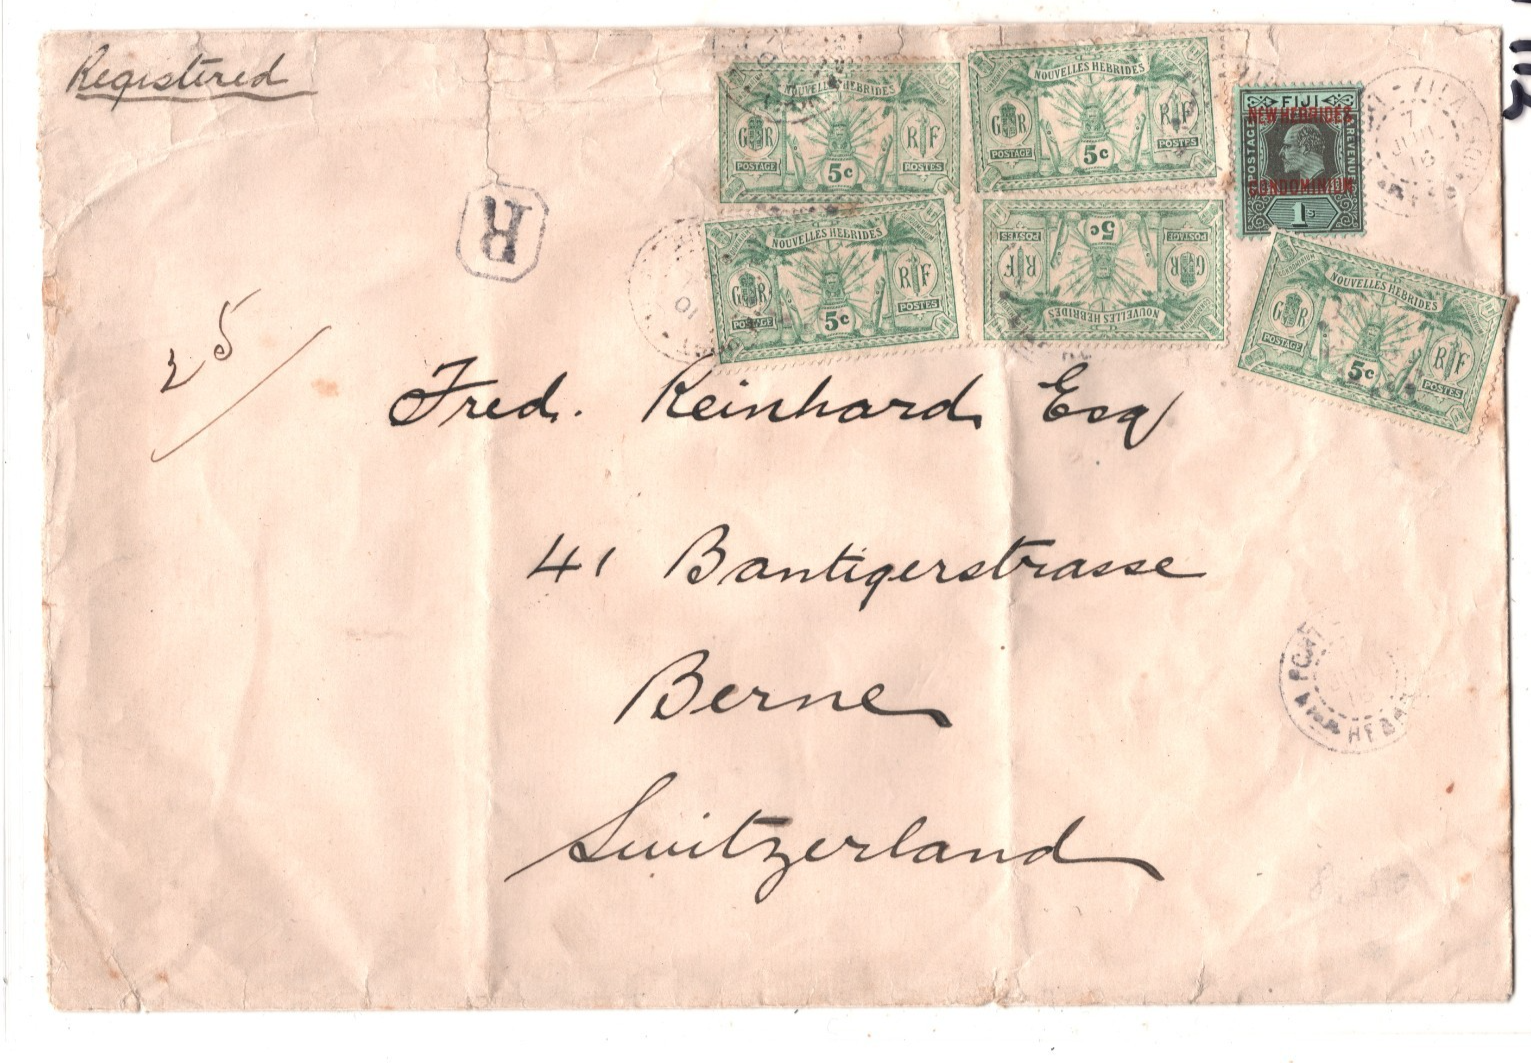 Registered
R
25/
NOUVELLES HEBRIDES
G R
R F
POSTAGE
5c
POSTES
NOUVELLES HEBRIDES
G R
R F
POSTAGE
5c
POSTES
FIJI
NEW HEBRIDES
POSTAGE
REVENUE
CONDOMINIUM
1s
7
JUL
10
NOUVELLES HEBRIDES
G R
R F
POSTAGE
5c
POSTES
NOUVELLES HEBRIDES
G R
R F
POSTAGE
5c
POSTES
NOUVELLES HEBRIDES
G R
R F
POSTAGE
5c
POSTES
Fred. Reinhard Esq
41 Bantigerstrasse
Berne
Switzerland